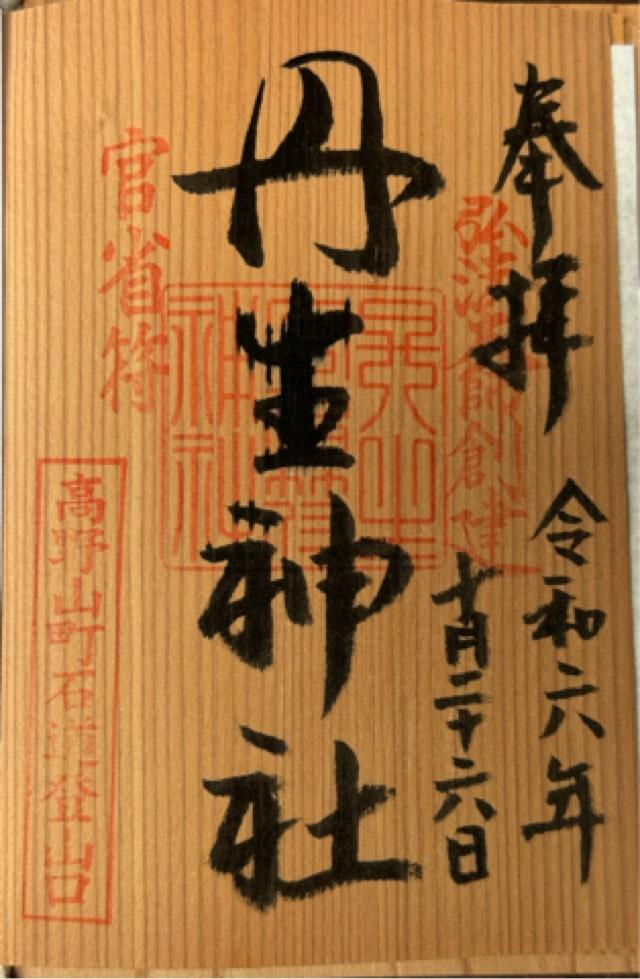 奉拝
令和六年
十月二十六日
弘法大師創建
丹生神社
官省符
高野山町石道登山口